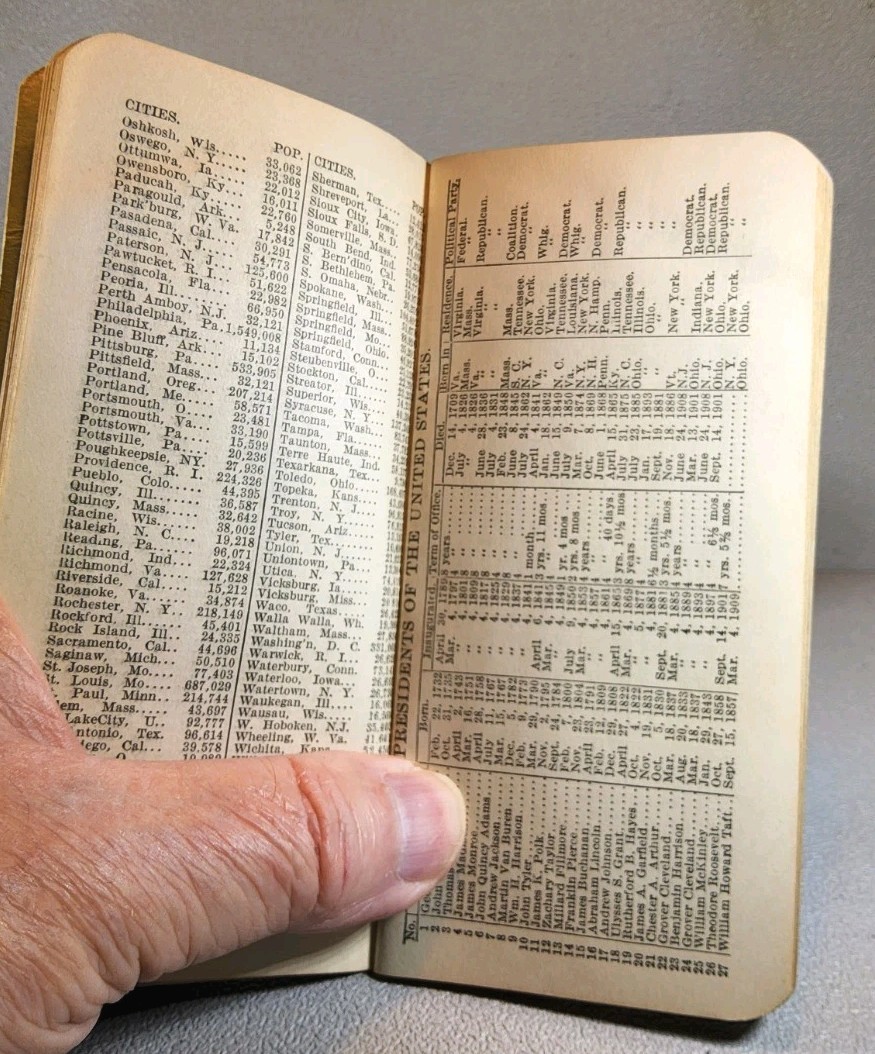 CITIES. POP.
Oshkosh, Wis..... 33,062
Oswego, N. Y..... 23,368
Ottumwa, Ia..... 22,012
Owensboro, Ky... 16,011
Paducah, Ky..... 22,760
Paragould, Ark... 5,248
Park'burg, W. Va. 17,842
Pasadena, Cal.... 30,291
Passaic, N. J..... 54,773
Paterson, N. J... 125,600
Pawtucket, R. I.. 51,622
Pensacola, Fla... 22,982
Peoria, Ill....... 66,950
Perth Amboy, N.J. 32,121
Philadelphia, Pa. 1,549,008
Phoenix, Ariz.... 11,134
Pine Bluff, Ark.. 15,102
Pittsburg, Pa.... 533,905
Pittsfield, Mass.. 32,121
Portland, Oreg.. 207,214
Portland, Me.... 58,571
Portsmouth, O... 23,481
Portsmouth, Va.. 33,190
Pottstown, Pa... 15,599
Pottsville, Pa.... 20,236
Poughkeepsie, NY. 27,936
Providence, R. I. 224,326
Pueblo, Colo.... 44,395
Quincy, Ill...... 36,587
Quincy, Mass.... 32,642
Racine, Wis..... 38,002
Raleigh, N. C.... 19,218
Reading, Pa..... 96,071
Richmond, Ind... 22,324
Richmond, Va... 127,628
Riverside, Cal... 15,212
Roanoke, Va.... 34,874
Rochester, N. Y.. 218,149
Rockford, Ill.... 45,401
Rock Island, Ill.. 24,335
Sacramento, Cal.. 44,696
Saginaw, Mich... 50,510
St. Joseph, Mo... 77,403
St. Louis, Mo.... 687,029
Paul, Minn... 214,744
em, Mass..... 43,697
LakeCity, U.. 92,777
ntonio, Tex.. 96,614
ego, Cal... 39,578
CITIES.
Sherman, Tex....
Shreveport, La...
Sioux City, Iowa.
Sioux Falls, S. D.
Somerville, Mass.
South Bend, Ind.
S. Bern'dino, Cal.
S. Bethlehem, Pa.
S. Omaha, Nebr..
Spokane, Wash...
Springfield, Ill...
Springfield, Mass.
Springfield, Mo..
Springfield, Ohio.
Stamford, Conn...
Steubenville, O...
Stockton, Cal....
Streator, Ill.....
Superior, Wis....
Syracuse, N. Y...
Tacoma, Wash...
Tampa, Fla......
Taunton, Mass...
Terre Haute, Ind.
Texarkana, Tex..
Toledo, Ohio....
Topeka, Kans....
Trenton, N. J....
Troy, N. Y......
Tucson, Ariz....
Tyler, Tex......
Union, N. J.....
Uniontown, Pa...
Utica, N. Y.....
Vicksburg, Ia....
Vicksburg, Miss..
Waco, Texas....
Walla Walla, Wh.
Waltham, Mass...
Washing'n, D. C.
Warwick, R. I...
Waterbury, Conn.
Waterloo, Iowa..
Watertown, N. Y.
Waukegan, Ill....
Wausau, Wis....
W. Hoboken, N.J.
Wheeling, W. Va.
Wichita, Kans
PRESIDENTS OF THE UNITED STATES.
No. Born. Inaugurated. Term of Office. Died. Born in Residence. Political Party.
1 Ge Feb. 22, 1732 April 30, 1789 8 years Dec. 14, 1709 Va. Virginia. Federal.
2 John Oct. 31, 1735 Mar. 4, 1797 4 " July 4, 1826 Mass. Mass. "
3 Thomas April 2, 1743 " 4, 1801 8 " " 4, 1826 Va. Virginia. Republican.
4 James Mad Mar. 16, 1751 " 4, 1809 8 " June 28, 1836 " " "
5 James Monroe. April 28, 1758 " 4, 1817 8 " July 4, 1831 " " "
6 John Quincy Adams July 11, 1767 " 4, 1825 4 " Feb. 23, 1848 Mass. Mass. Coalition.
7 Andrew Jackson Mar. 15, 1767 " 4, 1829 8 " June 8, 1845 S. C. Tennessee. Democrat.
8 Martin Van Buren Dec. 5, 1782 " 4, 1837 4 " July 24, 1862 N. Y. New York. "
9 Wm. H. Harrison Feb. 9, 1773 " 4, 1841 1 month April 4, 1841 Va. Ohio. Whig.
10 John Tyler Mar. 29, 1790 April 6, 1841 3 yrs. 11 mos Jan. 18, 1862 " Virginia. "
11 James K. Polk Nov. 2, 1795 Mar. 4, 1845 4 " June 15, 1849 N. C. Tennessee. Democrat.
12 Zachary Taylor Sept. 24, 1784 " 1849 1 yr. 4 mos July 9, 1850 Va. Louisiana. Whig.
13 Millard Fillmore Feb. 7, 1800 July 9, 1850 2 yrs. 8 mos. Mar. 7, 1874 N.Y. New York. "
14 Franklin Pierce Nov. 23, 1804 Mar. 4, 1853 4 years Oct. 8, 1869 N. H. N. Hamp. Democrat.
15 James Buchanan April 23, 1791 " 4, 1857 4 " June 1, 1868 Penn. Penn. "
16 Abraham Lincoln Feb. 12, 1809 " 4, 1861 4 " 40 days. April 15, 1865 Ky. Illinois. Republican.
17 Andrew Johnson Dec. 29, 1808 April 15, 1865 3 yrs. 10½ mos July 31, 1875 N. C. Tennessee. "
18 Ulysses S. Grant April 27, 1822 Mar. 4, 1869 8 years July 23, 1885 Ohio. Illinois. "
19 Rutherford B. Hayes Oct. 4, 1822 " 5, 1877 4 " Jan. 17, 1893 " Ohio. "
20 James A. Garfield Nov. 19, 1831 " 4, 1881 6½ months Sept. 19, 1881 " " "
21 Chester A. Arthur Oct. 5, 1830 Sept. 20, 1881 3 yrs. 5½ mos. Nov. 18, 1886 Vt. New York. "
22 Grover Cleveland Mar. 18, 1837 Mar. 4, 1885 4 years June 24, 1908 N.J. " Democrat.
23 Benjamin Harrison Aug. 20, 1833 " 4, 1889 4 " Mar. 13, 1901 Ohio. Indiana. Republican.
24 Grover Cleveland Mar. 18, 1837 " 4, 1893 4 " June 24, 1908 N. J. New York. Democrat.
25 William McKinley Jan. 29, 1843 " 4, 1897 4 " 6½ mos. Sept. 14, 1901 Ohio. Ohio. Republican.
26 Theodore Roosevelt Oct. 27, 1858 Sept. 14, 1901 7 yrs. 5⅔ mos. N. Y. New York. "
27 William Howard Taft Sept. 15, 1857 Mar. 4, 1909 Ohio. Ohio. "